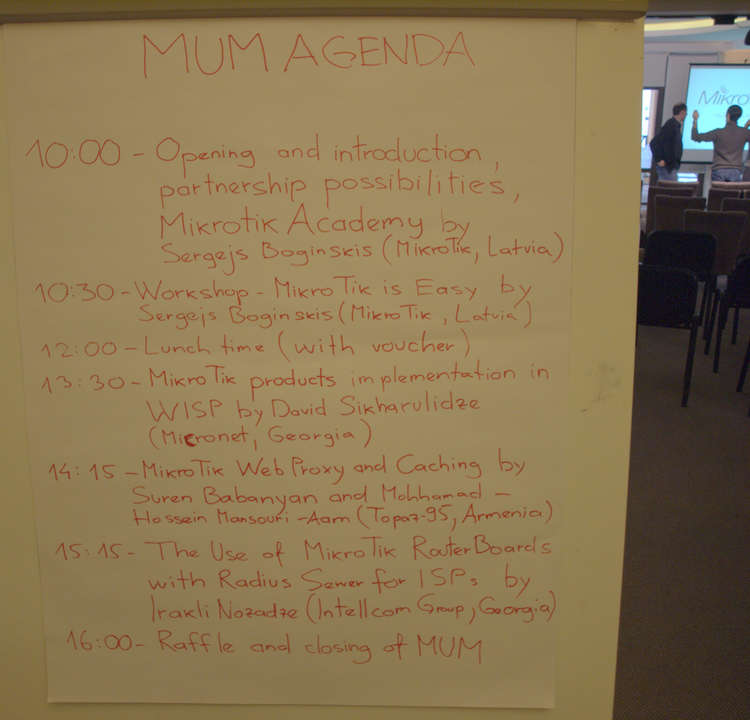 MUM AGENDA
10:00 - Opening and introduction,
partnership possibilities,
Mikrotik Academy by
Sergejs Boginskis (MikroTik, Latvia)
10:30 - Workshop - MikroTik is Easy by
Sergejs Boginskis (MikroTik, Latvia)
12:00 - Lunch time (with voucher)
13:30 - MikroTik products implementation in
WISP by David Sikharulidze
(Micronet, Georgia)
14:15 - MikroTik Web Proxy and Caching by
Suren Babanyan and Mohhamad -
Hossein Mansouri-Aam (Topaz-95, Armenia)
15:15 - The Use of MikroTik RouterBoards
with Radius Server for ISPs by
Irakli Nozadze (Intellcom Group, Georgia)
16:00 - Raffle and closing of MUM
Mikro